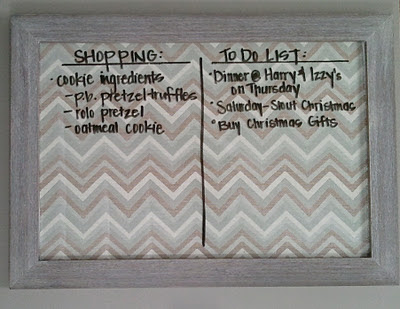 SHOPPING:
• cookie ingredients
- p.b. pretzel truffles
- rolo pretzel
- oatmeal cookie
TO DO LIST:
• Dinner @ Harry & Izzy's
on Thursday
• Saturday - Stout Christmas
• Buy Christmas Gifts